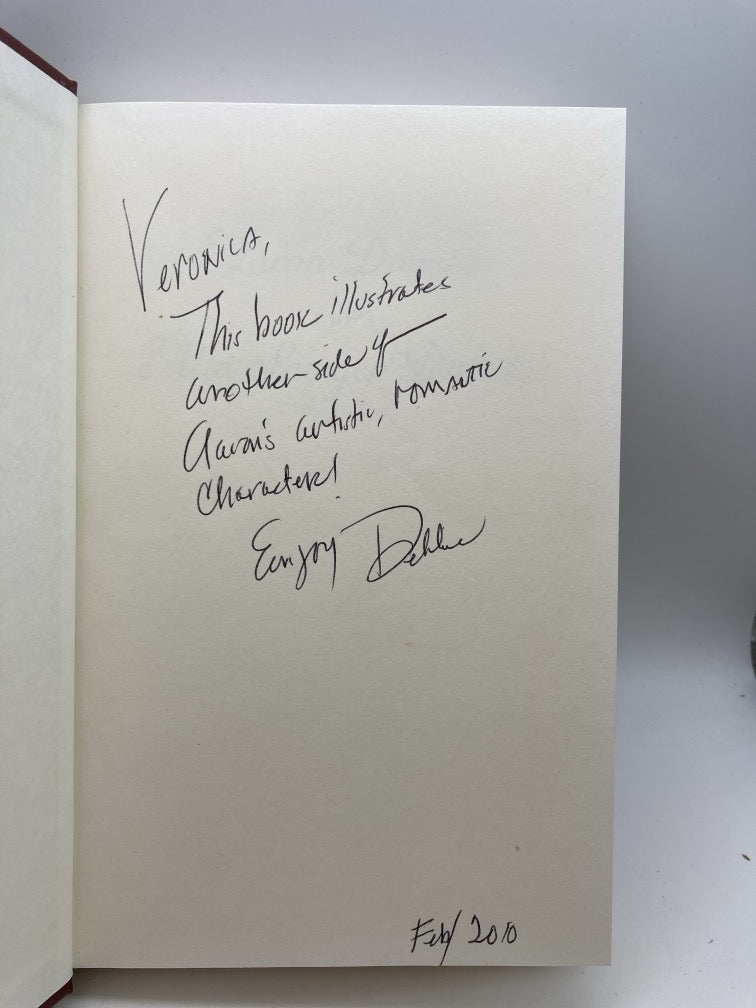 Veronica,
This book illustrates
another side of
Aaron's artistic, romantic
Character!
Enjoy
Feb/ 2010